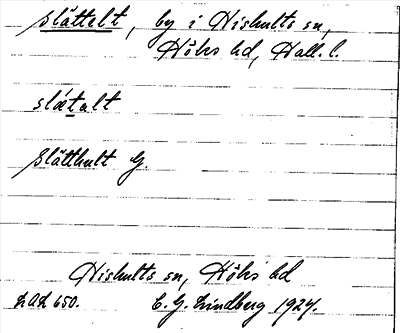 slättelt, by i Hishults sn,
Höks hd, Hall. l.
slætult
Slätthult G.
Hishults sn, Höks hd
LAL 650. C. G. Lindberg 1924.